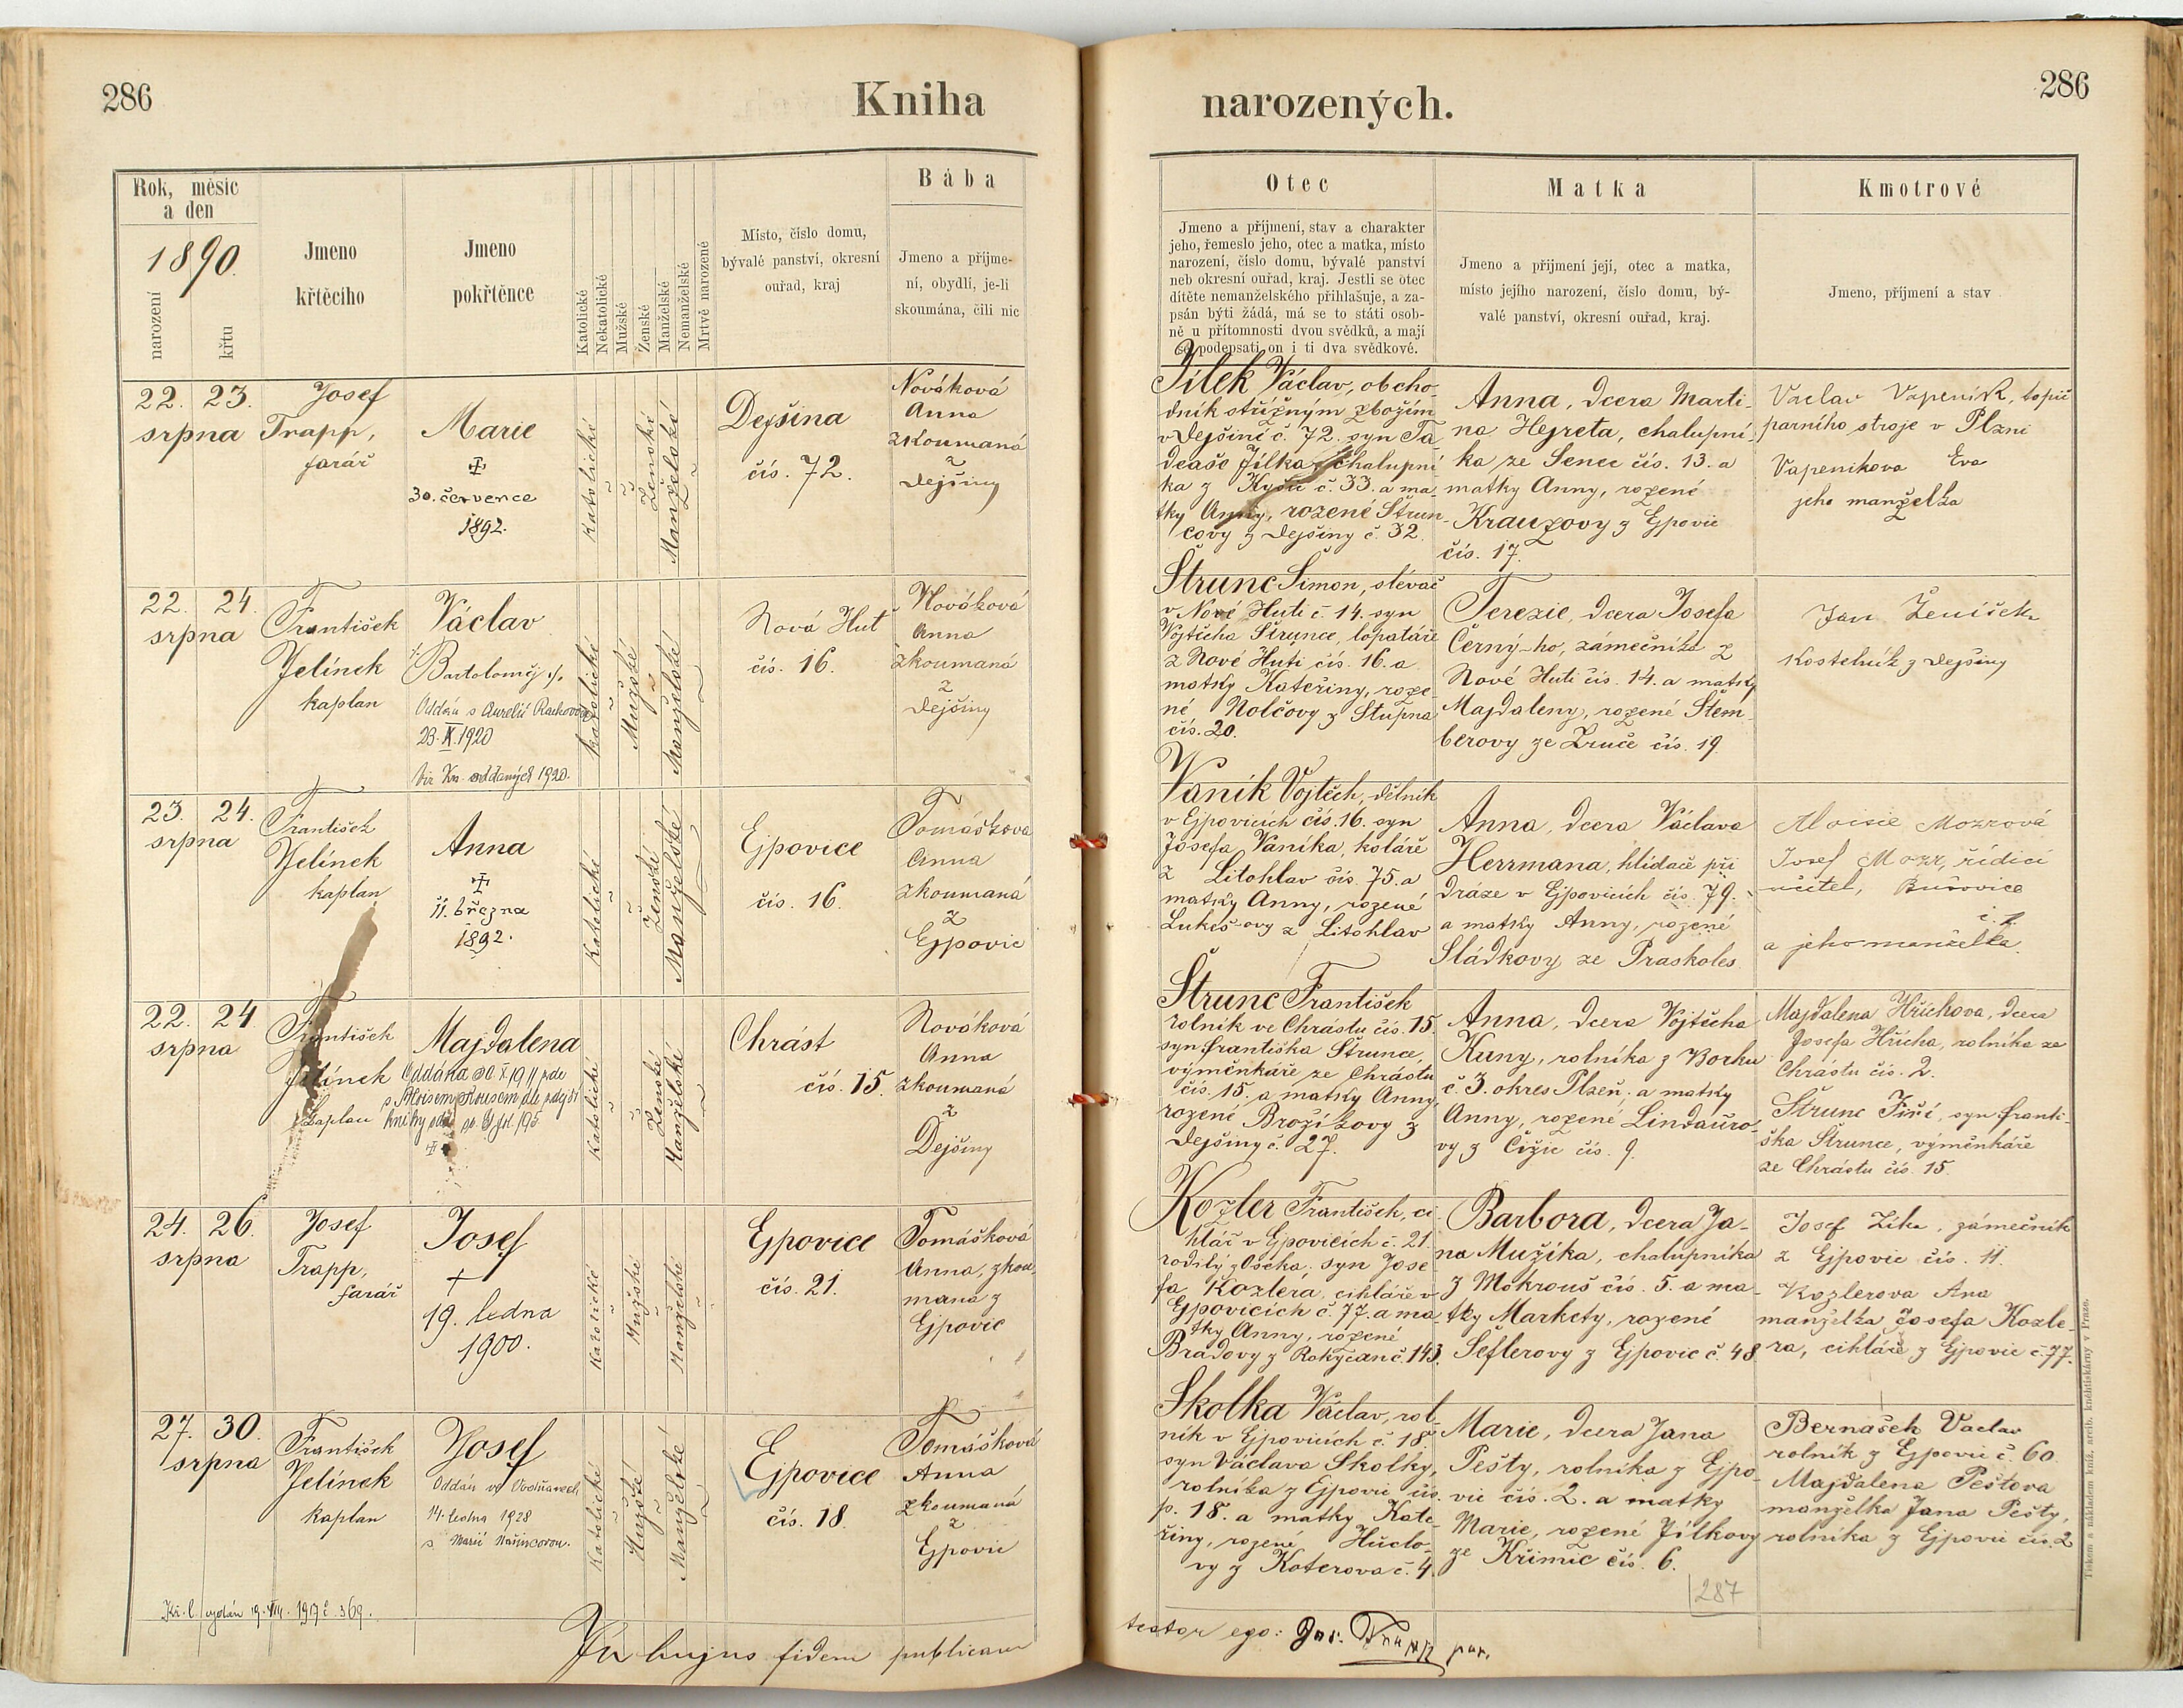 286
Kniha
Rok, měsíc
a den
1890.
narození
křtu
Jmeno
křtěcího
Jmeno
pokřtěnce
Katolické
Nekatolické
Mužské
Ženské
Manželské
Nemanželské
Mrtvě narozené
Místo, číslo domu,
bývalé panství, okresní
ouřad, kraj
Bába
Jmeno a příjme-
ní, obydlí, je-li
skoumána, čili nic
22. 23.
srpna
Josef
Trapp,
farář
Marie
30. července
1892.
Katolické
Ženské
Manželské
Dejšina
čís. 72.
Nováková
Anna
zkoumaná
z
Dejšiny
22. 24.
srpna
František
Jelínek
kaplan
Václav
Bartoloměj
Oddán s Aurelií
23. X. 1920
Viz Kn. oddaných 1920.
Katolické
Mužské
Manželské
Nová Huť
čís. 16.
Nováková
Anna
zkoumaná
z
Dejšiny
23. 24.
srpna
František
Jelínek
kaplan
Anna
11. března
1892.
Katolické
Ženské
Manželské
Ejpovice
čís. 16.
Tomášková
Anna
zkoumaná
z
Ejpovic
22. 24.
srpna
František
Jelínek
kaplan
Majdalena
Oddána 30 X 1911 zde
s Aloisem dle zdejší
knihy odd.
Katolické
Ženské
Manželské
Chrást
čís. 15.
Nováková
Anna
zkoumaná
z
Dejšiny
24. 26.
srpna
Josef
Trapp,
farář
Josef
19. ledna
1900.
Katolické
Mužské
Manželské
Ejpovice
čís. 21.
Tomášková
Anna, zkou-
maná z
Ejpovic
27. 30.
srpna
František
Jelínek
kaplan
Josef
Oddán ve
14. ledna 1928
s Marií
Katolické
Mužské
Manželské
Ejpovice
čís. 18.
Tomášková
Anna
zkoumaná
z
Ejpovic
Kř. l. vydán 19. VIII. 1917 č. 369.
In hujus fidem publicam
286
narozených.
Otec
Jmeno a příjmení, stav a charakter
jeho, řemeslo jeho, otec a matka, místo
narození, číslo domu, bývalé panství
neb okresní ouřad, kraj. Jestli se otec
dítěte nemanželského přihlašuje, a za-
psán býti žádá, má se to státi osob-
ně u přítomnosti dvou svědků, a mají
se podepsati on i ti dva svědkové.
Matka
Jmeno a příjmení její, otec a matka,
místo jejího narození, číslo domu, bý-
valé panství, okresní ouřad, kraj.
Kmotrové
Jmeno, příjmení a stav
Jílek Václav, obcho-
dník střižným zbožím
v Dejšině č. 72. syn Ta-
deáše Jílka, chalupní-
ka z Kyšic č. 33. a ma-
tky Anny, rozené Štrun-
covy z Dejšiny č. 32.
Anna, dcera Marti-
na Hejreta, chalupní-
ka ze Senec čís. 13. a
matky Anny, rozené
Krauzovy z Ejpovic
čís. 17.
Vaclav Vapeník, topič
parního stroje v Plzni
Vapenikova Eva
jeho manželka
Štrunc Šimon, slévač
v Nové Huti č. 14. syn
Vojtěcha Štrunce, lopatáře
z Nové Huti čís. 16. a
matky Kateřiny, roze-
né Nolčovy z Stupna
čís. 20.
Terezie, dcera Josefa
Černý-ho, zámečníka z
Nové Huti čís. 14. a matky
Majdaleny, rozené Štem-
berovy ze Zruče čís. 19.
Jan Ženíšek
Kostelník z Dejšiny
Vaník Vojtěch, dělník
v Ejpovicích čís. 16. syn
Josefa Vaníka, koláře
z Litohlav čís. 75. a
matky Anny, rozené
Lukeš-ovy z Litohlav
Anna, dcera Václava
Herrmana, hlídače při
dráze v Ejpovicích čís. 79.
a matky Anny, rozené
Sládkovy ze Praskoles
Aloisie Mozrová
Josef Mozr, řídící
učitel, Bušovice
č. 1.
a jeho manželka.
Štrunc František
rolník ve Chrástu čís. 15.
syn Františka Štrunce,
výměnkáře ze Chrástu
čís. 15. a matky Anny,
rozené Brožíkovy z
Dejšiny č. 27.
Anna, dcera Vojtěcha
Kuny, rolníka z Borku
č. 3. okres Plzeň, a matky
Anny, rozené Lindauro-
vy z Čižic čís. 9.
Majdalena Hřichova, dcera
Josefa Hřicha, rolníka ze
Chrástu čís. 2.
Štrunc Jiří, syn Franti-
ška Štrunce, výměnkáře
ze Chrástu čís. 15.
Kozler František, ci-
hlář v Ejpovicích č. 21.
rodilý z Oseka, syn Jose-
fa Kozlera, cihláře v
Ejpovicích č. 77. a ma-
tky Anny, rozené
Bradovy z Rokycan č. 143.
Barbora, dcera Ja-
na Mužíka, chalupníka
z Mokrouš čís. 5. a ma-
tky Markety, rozené
Šeflerovy z Ejpovic č. 48.
Josef Zíka, zámečník
z Ejpovic čís. 11.
Kozlerova Ana
manželka Josefa Kozle-
ra, cihláře z Ejpovic č. 77.
Skolka Václav, rol-
ník v Ejpovicích č. 18.
syn Václava Skolky,
rolníka z Ejpovic čís.
p. 18. a matky Kate-
řiny, rozené Húclo-
vy z Koterova č. 4.
Marie, dcera Jana
Pešty, rolníka z Ejpo-
vic čís. 2. a matky
Marie, rozené Jílkovy
ze Křimic čís. 6.
Bernašek Vaclav
rolník z Ejpovic č. 60.
Majdalena Peštova
manželka Jana Pešty,
rolníka z Ejpovic čís. 2
287
testor ego: Jos. Trapp par.
Tiskem a nákladem kníž. arcib. knihtiskárny v Praze.